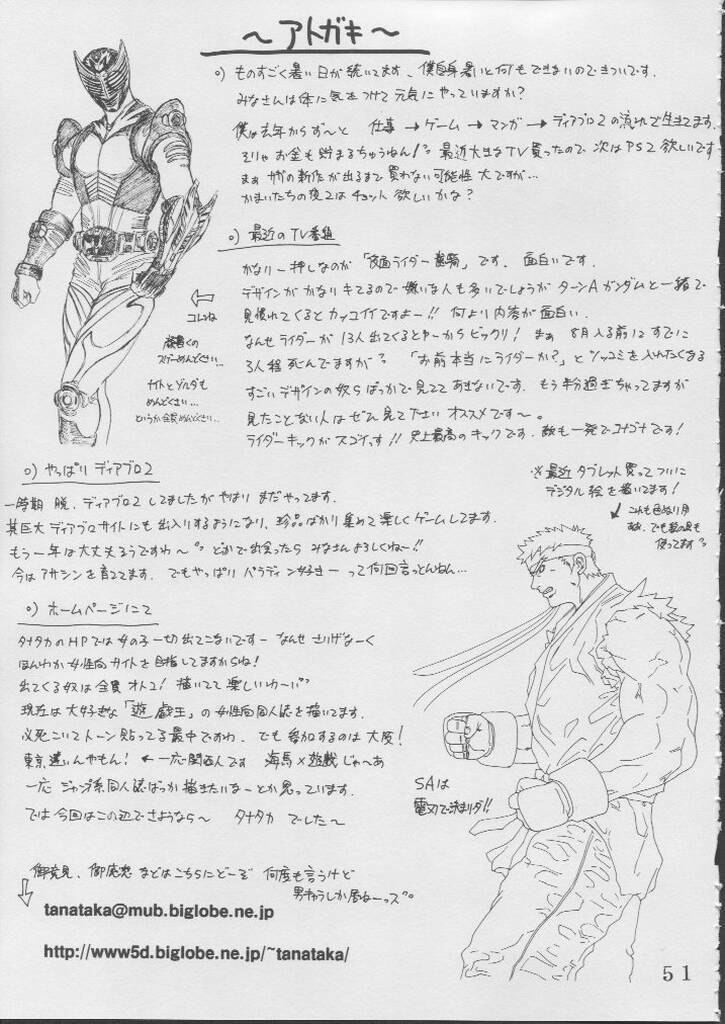 ～アトガキ～
○) ものすごく暑い日が続いてます、僕自身暑いと何もできないのできついです。
みなさんは体に気をつけて元気にやっていますか?
僕は去年からず～と 仕事→ゲーム→マンガ→ディアブロ2の流れで生きてます。
そりゃお金も貯まるちゅうねん!° 最近大きなTV買ったので次はPS2欲しいです
まぁ サガの新作が出るまで買わない可能性大ですが…
かまいたちの夜2はチョット欲しいかな?
○) 最近のTV番組
かなり一押しなのが「仮面ライダー龍騎」です。面白いです。
デザインがかなりキてるので嫌いな人も多いでしょうがターンAガンダムと一緒で
見慣れてくるとカッコイイですよー!! 何より内容が面白い。
なんせライダーが13人出てくるとやーからビックリ! まぁ 8月入る前にすでに
3人程死んでますが° 「お前本当にライダーか?」とツッコミを入れたくなる
すごいデザインの奴らばっかで見ててあきないです。もう半分過ぎちゃってますが
見たことない人はぜひ見て下さい オススメです～。
ライダーキックがスゴイっす!! 史上最高のキックです。敵も一発でコナゴナです!
⇦
コレね
龍騎の
めんどくさい…
ナイトとゾルダも
めんどくさい…
というか全員めんどくさい…
○) やっぱりディアブロ2
一時期 脱、ディアブロ2してましたがやはりまだやってます。
某巨大ディアブロサイトにも出入りするようになり、珍品ばかり集めて楽しくゲームしてます。
もう一年は大丈夫そうですわ～° どこかで出会ったらみなさんよろしくねー!!
今はアサシンを育ててます。でもやっぱりパラディン好きーって何回言っとんねん…
※最近タブレット買ってついに
デジタル絵を描いてます!
○) ホームページにて
タナタカのHPでは女の子一切出てこないですー なんせ さりげなーく
ほんわか女性向サイトを目指してますからね!
出てくる奴は全員オトコ! 描いてて楽しいわー°
現在は大好きな「遊戯王」の女性向同人誌を描いてます。
必死こいてトーン貼ってる最中ですわ、でも参加するのは大阪!
東京遠いんやもん! ←一応関西人です 海馬×遊戯じゃーあ
一応ジャンプ系同人誌ばっか描きたいなーとか思っています。
では今回はこの辺でさようなら～ タナタカでした～
SAは
電刃で決まりダ!!
御意見、御感想などはこちらにどーぞ 何度も言うけど
男キャラしか居ねーっス°
tanataka@mub.biglobe.ne.jp
http://www5d.biglobe.ne.jp/~tanataka/
51